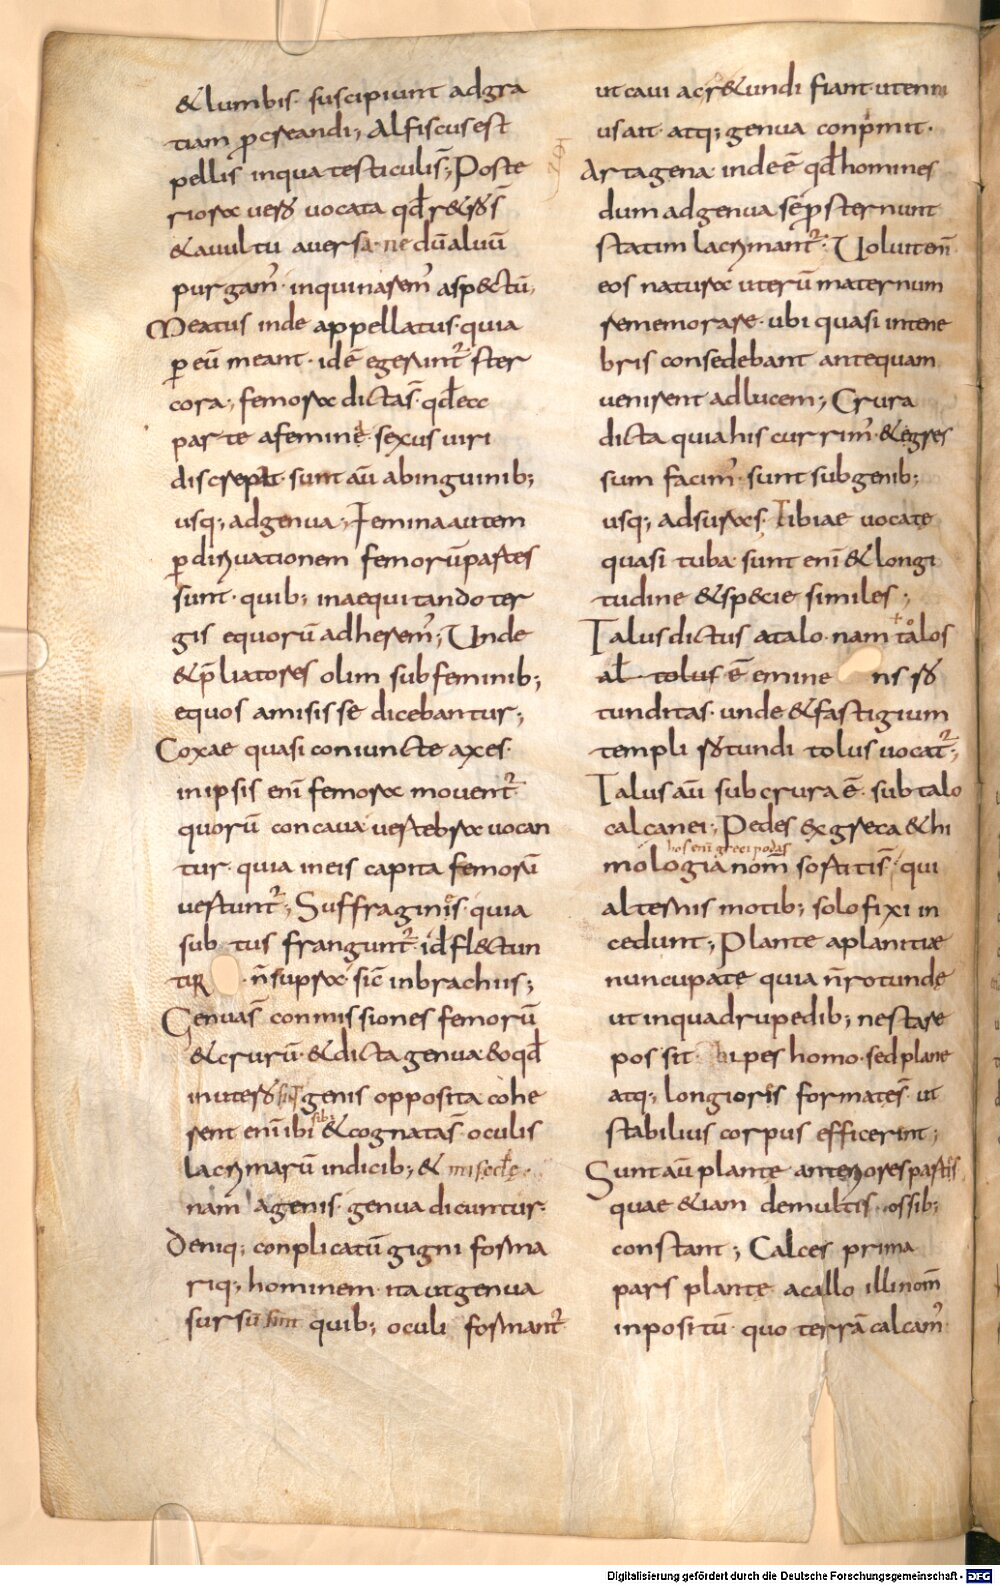 & lumbis suscipiunt adgra
tiam ꝓcreandi; Alfiscus est
pellis inqua testiculis̄; Poste
riora vero vocata qđ retros̄
& avultu aversa ne dū alvū
purgam᾿ inquinarem᾿ aspectū;
Meatus inde appellatus quia
ꝑ eū meant id ē egerunt᾿ ster
cora; femora dictas̄ qđ ecc
parte afemine sexus viri
discrepet sunt aū abinguinib;
usq; adgenua; Femina autem
ꝑdirivationem femorū partes
sunt quib; inaequitando ter
gis equorū adherem᾿; Unde
& p̄liatores olim subfeminib;
equos amisisse dicebantur;
Coxae quasi coniuncte axes
inipsis enī femora movent᾿
quorū concava vertebra vocan
tur quia ineis capita femorū
vertunt᾿; Suffraginis quia
subtus frangunt᾿ id flectun
tur n̄ supra sic̄ inbrachiis;
Genuas̄ conmissiones femorū
& crurū & dicta genua eo qđ
inutero sint genis opposita cohe
rent enī ibi sib; & cognatas̄ oculis
lacrimarū indicib; &
nam agenis genua dicuntur
Deniq; conplicatū gigni forma
riq; hominem ita ut genua
sursū sint quib; oculi formant᾿
ut cavi ac r&undi fiant ut enni
us ait atq; genua conprimit
Artagena inde ē qđ homines
dum adgenua se ꝓsternunt
statim lacrimant᾿ Voluit enī
eos natura uterū maternum
rememorare ubi quasi intene
bris consedebant antequam
venirent adlucem; Crura
dicta quia his currim᾿ & egres
sum facim᾿ sunt subgenib;
usq; adsuras Tibiae vocate
quasi tuba sunt enī & longi
tudine & specie similes;
Talus dictus atalo nam talos
al tolus ē emine ns ro
tunditas unde & fastigium
templi rotundi tolus vocat᾿;
Talus aū sub crura ē sub talo
calcanei; Pedes ex greca & hi
mologia nom̄ sortitis̄ qui
hos enī greci podas
alternis motib; solo fixi in
cedunt; Plante aplanitiae
nuncupate quia n̄ rotunde
ut inquadrupedib; ne stare
possit bipes homo sed plane
atq; longioris formates̄ ut
stabilius corpus efficerint;
Sunt aū plante anteriores partes
quae &iam demultis ossib;
constant; Calces prima
pars plante acallo illi nom̄
inpositū quo terrā calcam᾿
Digitalisierung gefördert durch die Deutsche Forschungsgemeinschaft - DFG